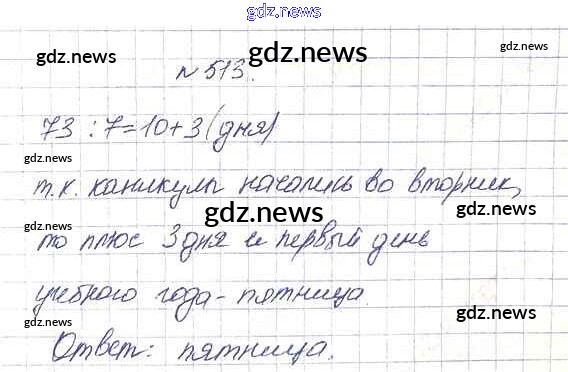 gdz.news
gdz.news
gdz.news
gdz.news
№ 513.
73 : 7 = 10 + 3 (дня)
gdz.news
gdz.news
т.к. каникулы начались во вторник,
gdz.news
gdz.news
gdz.news
то плюс 3 дня и первый день
gdz.news
учебного года - пятница.
gdz.news
gdz.news
Ответ: пятница.